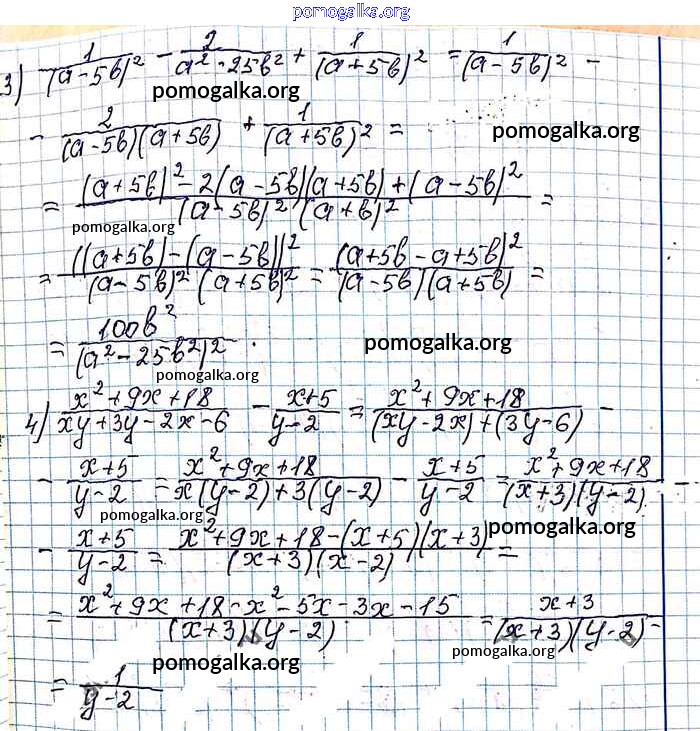 pomogalka.org
3) 1/(a-5b)² - 2/(a²-25b²) + 1/(a+5b)² = 1/(a-5b)² -
pomogalka.org
- 2/((a-5b)(a+5b)) + 1/(a+5b)² =
pomogalka.org
= ((a+5b)²-2(a-5b)(a+5b)+(a-5b)²)/((a-5b)²(a+b)²) =
pomogalka.org
= ((a+5b)-(a-5b))²/((a-5b)²(a+5b)²) = (a+5b-a+5b)²/((a-5b)(a+5b)) =
= 100b²/(a²-25b²)².
pomogalka.org
pomogalka.org
4) (x²+9x+18)/(xy+3y-2x-6) - (x+5)/(y-2) = (x²+9x+18)/((xy-2x)+(3y-6)) -
- (x+5)/(y-2) = (x²+9x+18)/(x(y-2)+3(y-2)) - (x+5)/(y-2) = (x²+9x+18)/((x+3)(y-2)) -
pomogalka.org
pomogalka.org
- (x+5)/(y-2) = (x²+9x+18-(x+5)(x+3))/((x+3)(x-2)) =
pomogalka.org
= (x²+9x+18-x²-5x-3x-15)/((x+3)(y-2)) = (x+3)/((x+3)(y-2)) =
pomogalka.org
pomogalka.org
= 1/(y-2)
pomogalka.org